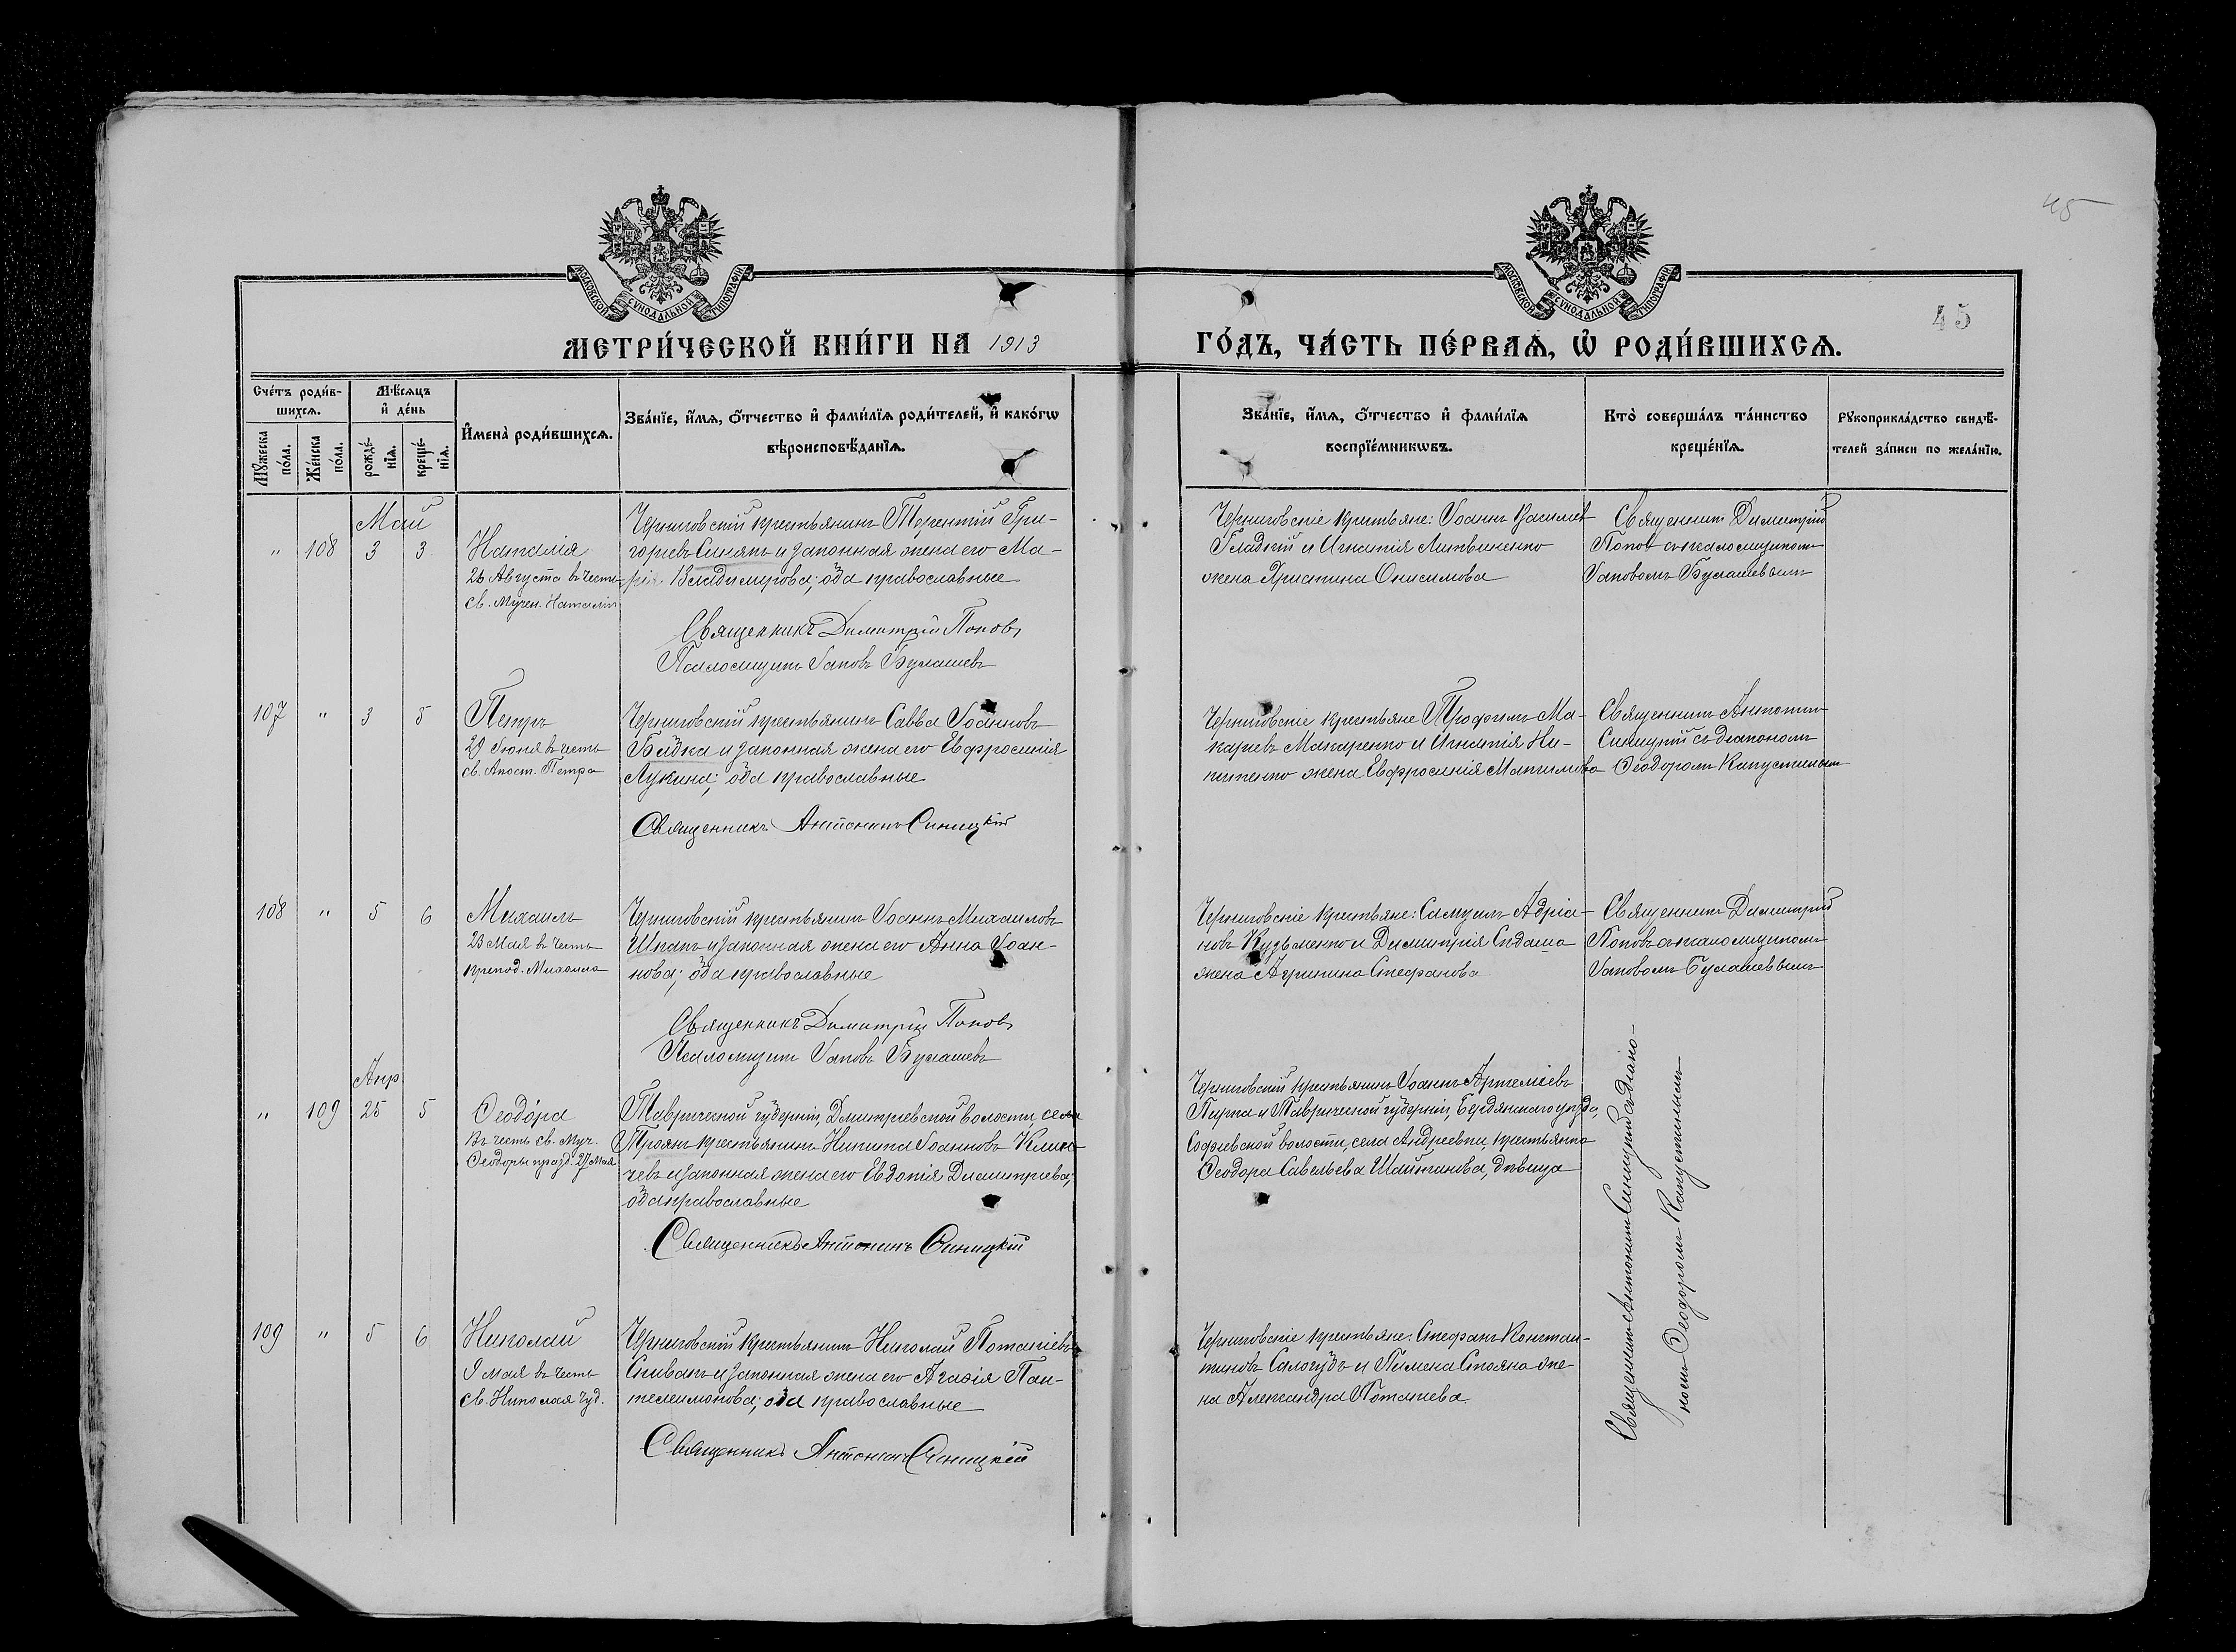 45
МОСКОВСКОЙ СУНОДАЛЬНОЙ ТИПОГРАФІИ
МОСКОВСКОЙ СУНОДАЛЬНОЙ ТИПОГРАФІИ
45
МЕТРИ́ЧЕСКОЙ КНИ́ГИ НА 1913
ГО́ДЪ, ЧА́СТЬ ПЕ́РВАѦ, Ѡ РОДИ́ВШИХСѦ.
Сче́тъ роди́в-
шихсѧ.
Мѣ́сѧцъ
и҆ де́нь
Мꙋ́жеска
по́ла.
Же́нска
по́ла.
рожде́-
нїѧ.
креще́-
нїѧ.
И҆мена̀ роди́вшихсѧ.
Зва́нїе, и҆́мѧ, ѻ҆́тчество и҆ фами́лїѧ роди́телей, и҆ како́гѡ
вѣроисповѣ́данїѧ.
Зва́нїе, и҆́мѧ, ѻ҆́тчество и҆ фами́лїѧ
воспрїе́мникѡвъ.
Кто̀ соверша́лъ та́инство
креще́нїѧ.
Рꙋкоприкла́дство свидѣ́-
телей за́писи по жела́нїю.
Май
" 108 3 3
Наталія
26 Августа въ честь
св. Мучен. Наталіи
Черниговскій крестьянинъ Терентій Гри-
горьевъ Синякъ и законная жена его Ма-
рія Владимірова; оба православные
Священникъ Димитрій Поповъ
Псаломщикъ Іаковъ Булашевъ
Черниговскіе крестьяне: Іоаннъ Василіев
Гладкій и Игнатія Литвиненко
жена Христина Онисимова
Священникъ Димитрій
Попов съ псаломщикомъ
Іаковомъ Булашевымъ
107 " 3 5
Петръ
29 Іюня въ честь
св. Апост. Петра
Черниговскій крестьянинъ Савва Іоанновъ
Бидка и законная жена его Евфросинія
Лукина; оба православные
Священникъ Антонинъ Синицкій
Черниговскіе крестьяне Трофимъ Ма-
каріевъ Макаренко и Игнатія Ни-
китенко жена Евфросинія Максимова
Священникъ Антонин
Синицкій съ діакономъ
Ѳеодоромъ Капустинымъ
108 " 5 6
Михаилъ
23 Мая въ честь
препод. Михаила
Черниговскій крестьянинъ Іоаннъ Михаиловъ
Шпакъ и законная жена его Анна Іоан-
нова; оба православные
Священникъ Димитрій Поповъ
Псаломщикъ Іаковъ Булашевъ
Черниговскіе крестьяне: Самуилъ Адріа-
новъ Кузьменко и Димитрія Сидаша
жена Агрипина Стефанова
Священникъ Димитрій
Поповъ съ псаломщикомъ
Іаковомъ Булашевымъ
Апр.
" 109 25 5
Ѳеодо́ра
Въ честь св. Муч.
Ѳеодоры празд. 27 Мая
Таврической губерніи, Дмитріевской волости, села
Троянъ крестьянинъ Никита Іоанновъ
и законная жена его Евдокія Димитріева;
оба православные
Священникъ Антонинъ Синицкій
Черниговскій крестьянинъ Іоаннъ Артеміевъ
и Таврической губерніи, Бердянскаго уѣзда,
Софіевской волости, села Андреевки, крестьянка
Ѳеодора Савельева Шайтанова, дѣвица
Священникъ Антонинъ Синицкій съ діако-
номъ Ѳеодоромъ Капустинымъ
109 " 5 6
Николай
9 мая въ честь
св. Николая Чуд.
Черниговскій крестьянинъ Николай Потапіевъ
Спивакъ и законная жена его Агафія Пан-
телеимонова; оба православные
Священникъ Антонинъ Синицкій
Черниговскіе крестьяне: Стефанъ Констан-
тиновъ Салогубъ и Пимена Стояна же-
на Александра Потапіева.